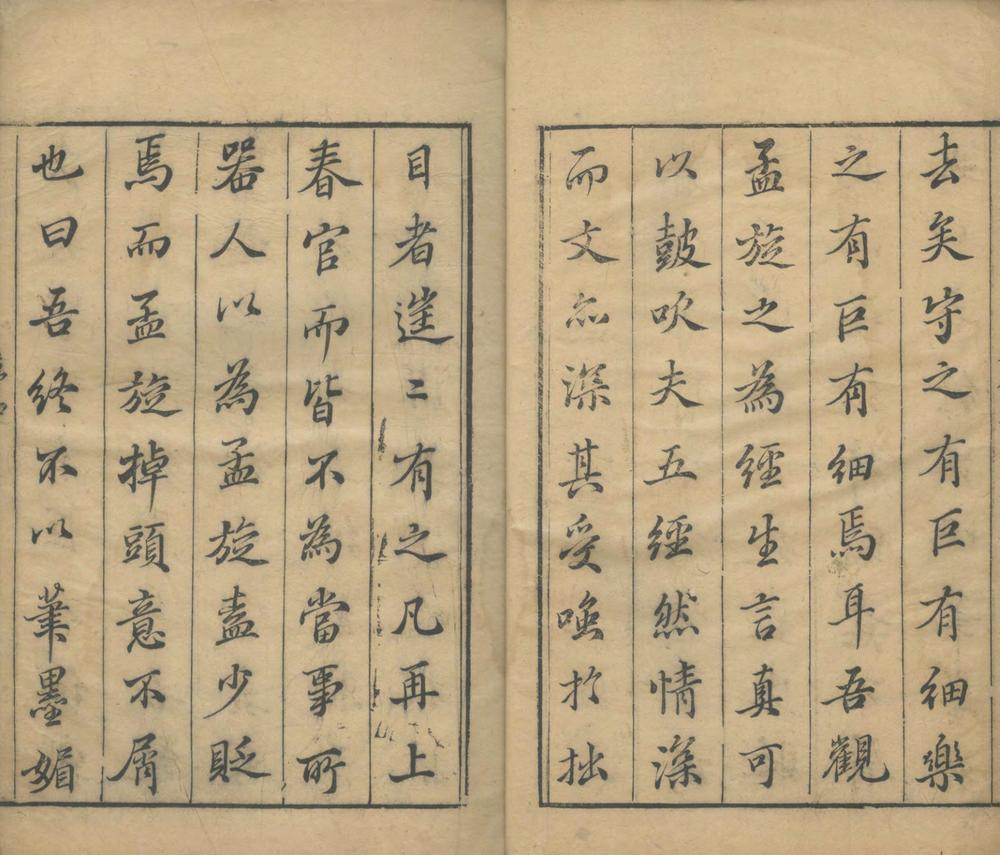 去矣守之有巨有細樂
之有巨有細焉耳吾觀
孟旋之為經生言真可
以鼓吹夫五經然情深
而文亦深其受嗤於拙
目者遳〻有之凡再上
春官而皆不為當事所
器人以為孟旋盍少貶
焉而孟旋掉頭意不屑
也曰吾終不以筆墨媚